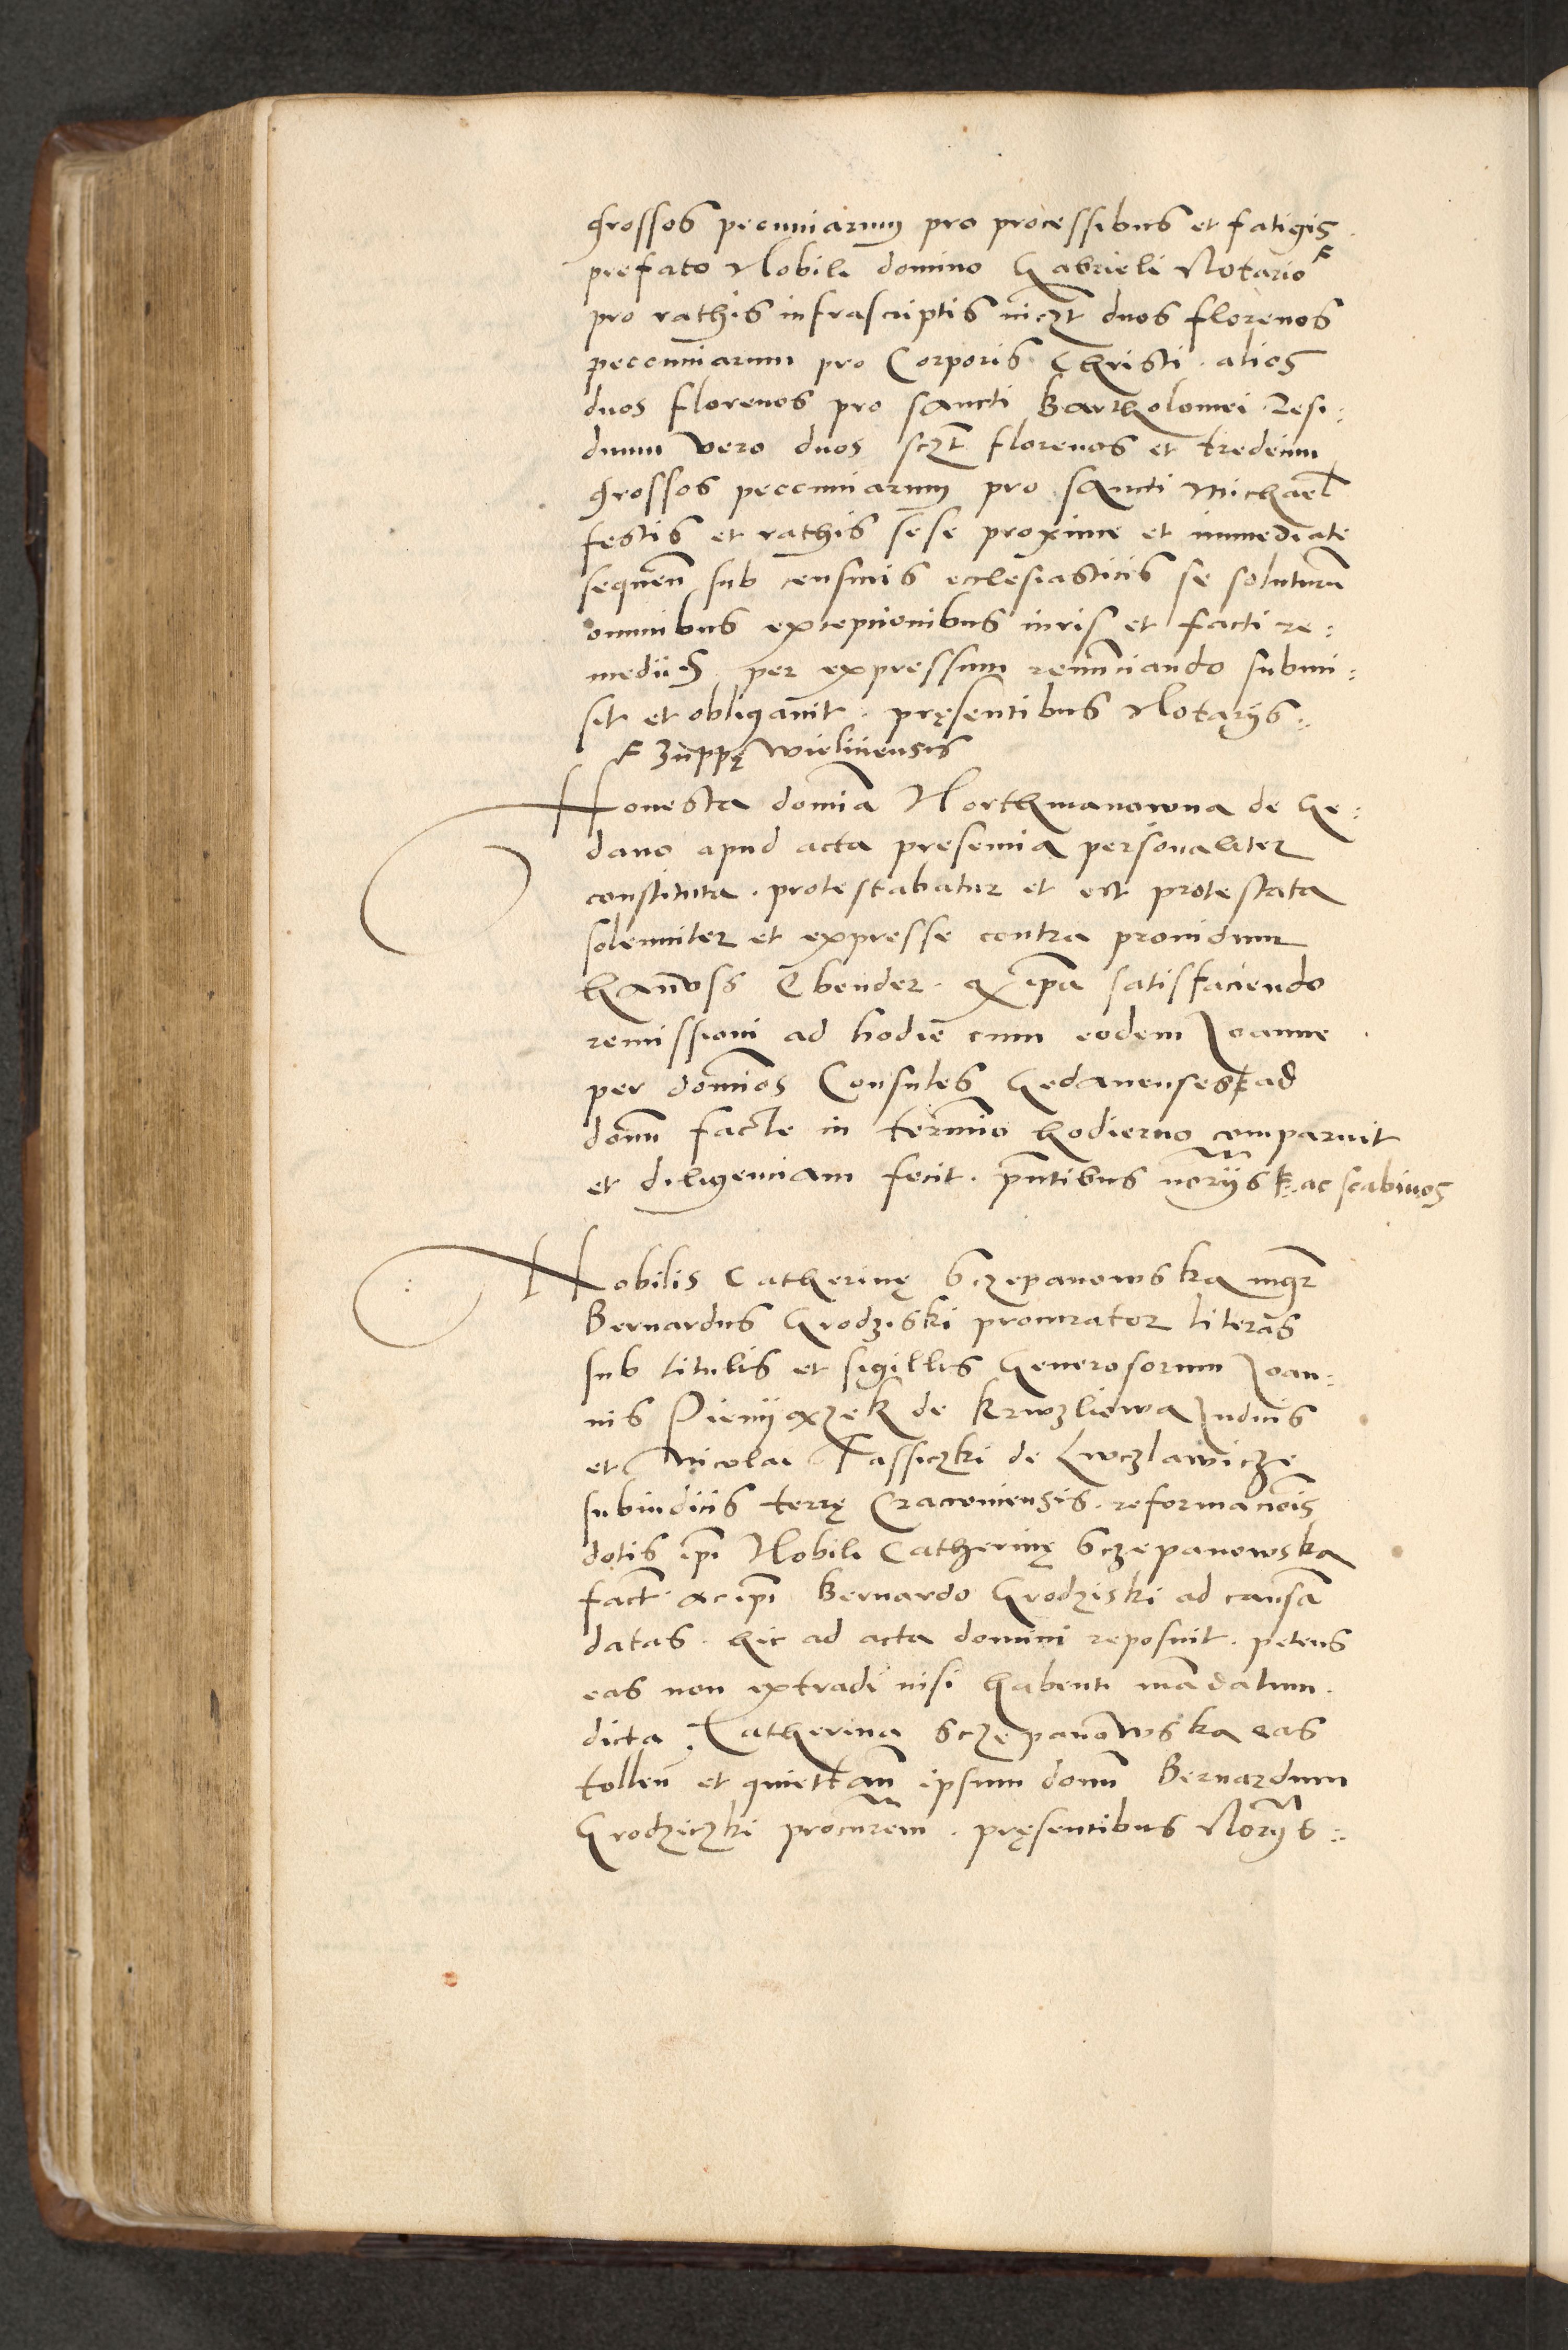 grossos pecuniarum pro processibus et fatigis
prefato Nobili domino Gabrieli Notario
pro rathis infrascriptis viczt duos florenos
peccuniarum pro Corporis Christi. alios
duos florenos pro sancti Bartholomei. Resi:
duum vero duos sczt florenos et tredecim
grossos peccuniarum pro sancti Michael
festis et rathis sese proxime et immediate
sequen̄ sub censuris ecclesiasticis se soluturū
omnibus exceptionibus iuris et facti re:
mediis per expressum renunciando submi:
sit et obligauit. pręsentibus Notarijs:
Zuppę wielicensis
Honesta domīa Northmanowna de Ge:
dano apud acta presencia personaliter
constituta. protestabatur et est protestata
solenniter et expresse contra prouidum
Hannoss Ebender. q ip̄a satisfaciendo
remissioni ad hodiē cum eodem Joanne
per domīos Consules Gedanenses ad
domū facte in termīo hodierno comparuit
et diligenciam fecit. pn̄tibus no͞rijs ac scabinos
Nobilis Catherinę Sczepanowska mg͞r
Bernardus Grodziski procurator literas
sub titulis et sigillis Generosorum Joan:
nis Pienyaxzek de Krwzliowa Judicis
et Nicolai Jassiczki de Lwczlawicze
subiudicis terrę Cracouiensis. reformac̄ōis
dotis ip̄i Nobili Catherinę Sczepanowska
fact̄ ac ip̄i Bernardo Grodziski ad causā
datas. hic ad acta domini reposuit. petens
eas non extradi nisi habenti mādatum.
dicta Catherina Sczepanowska eas
tollen̄ et quiettan̄ ipsum domū Bernardum
Grodziczki procu͞rem. pręsentibus No͞rijs: